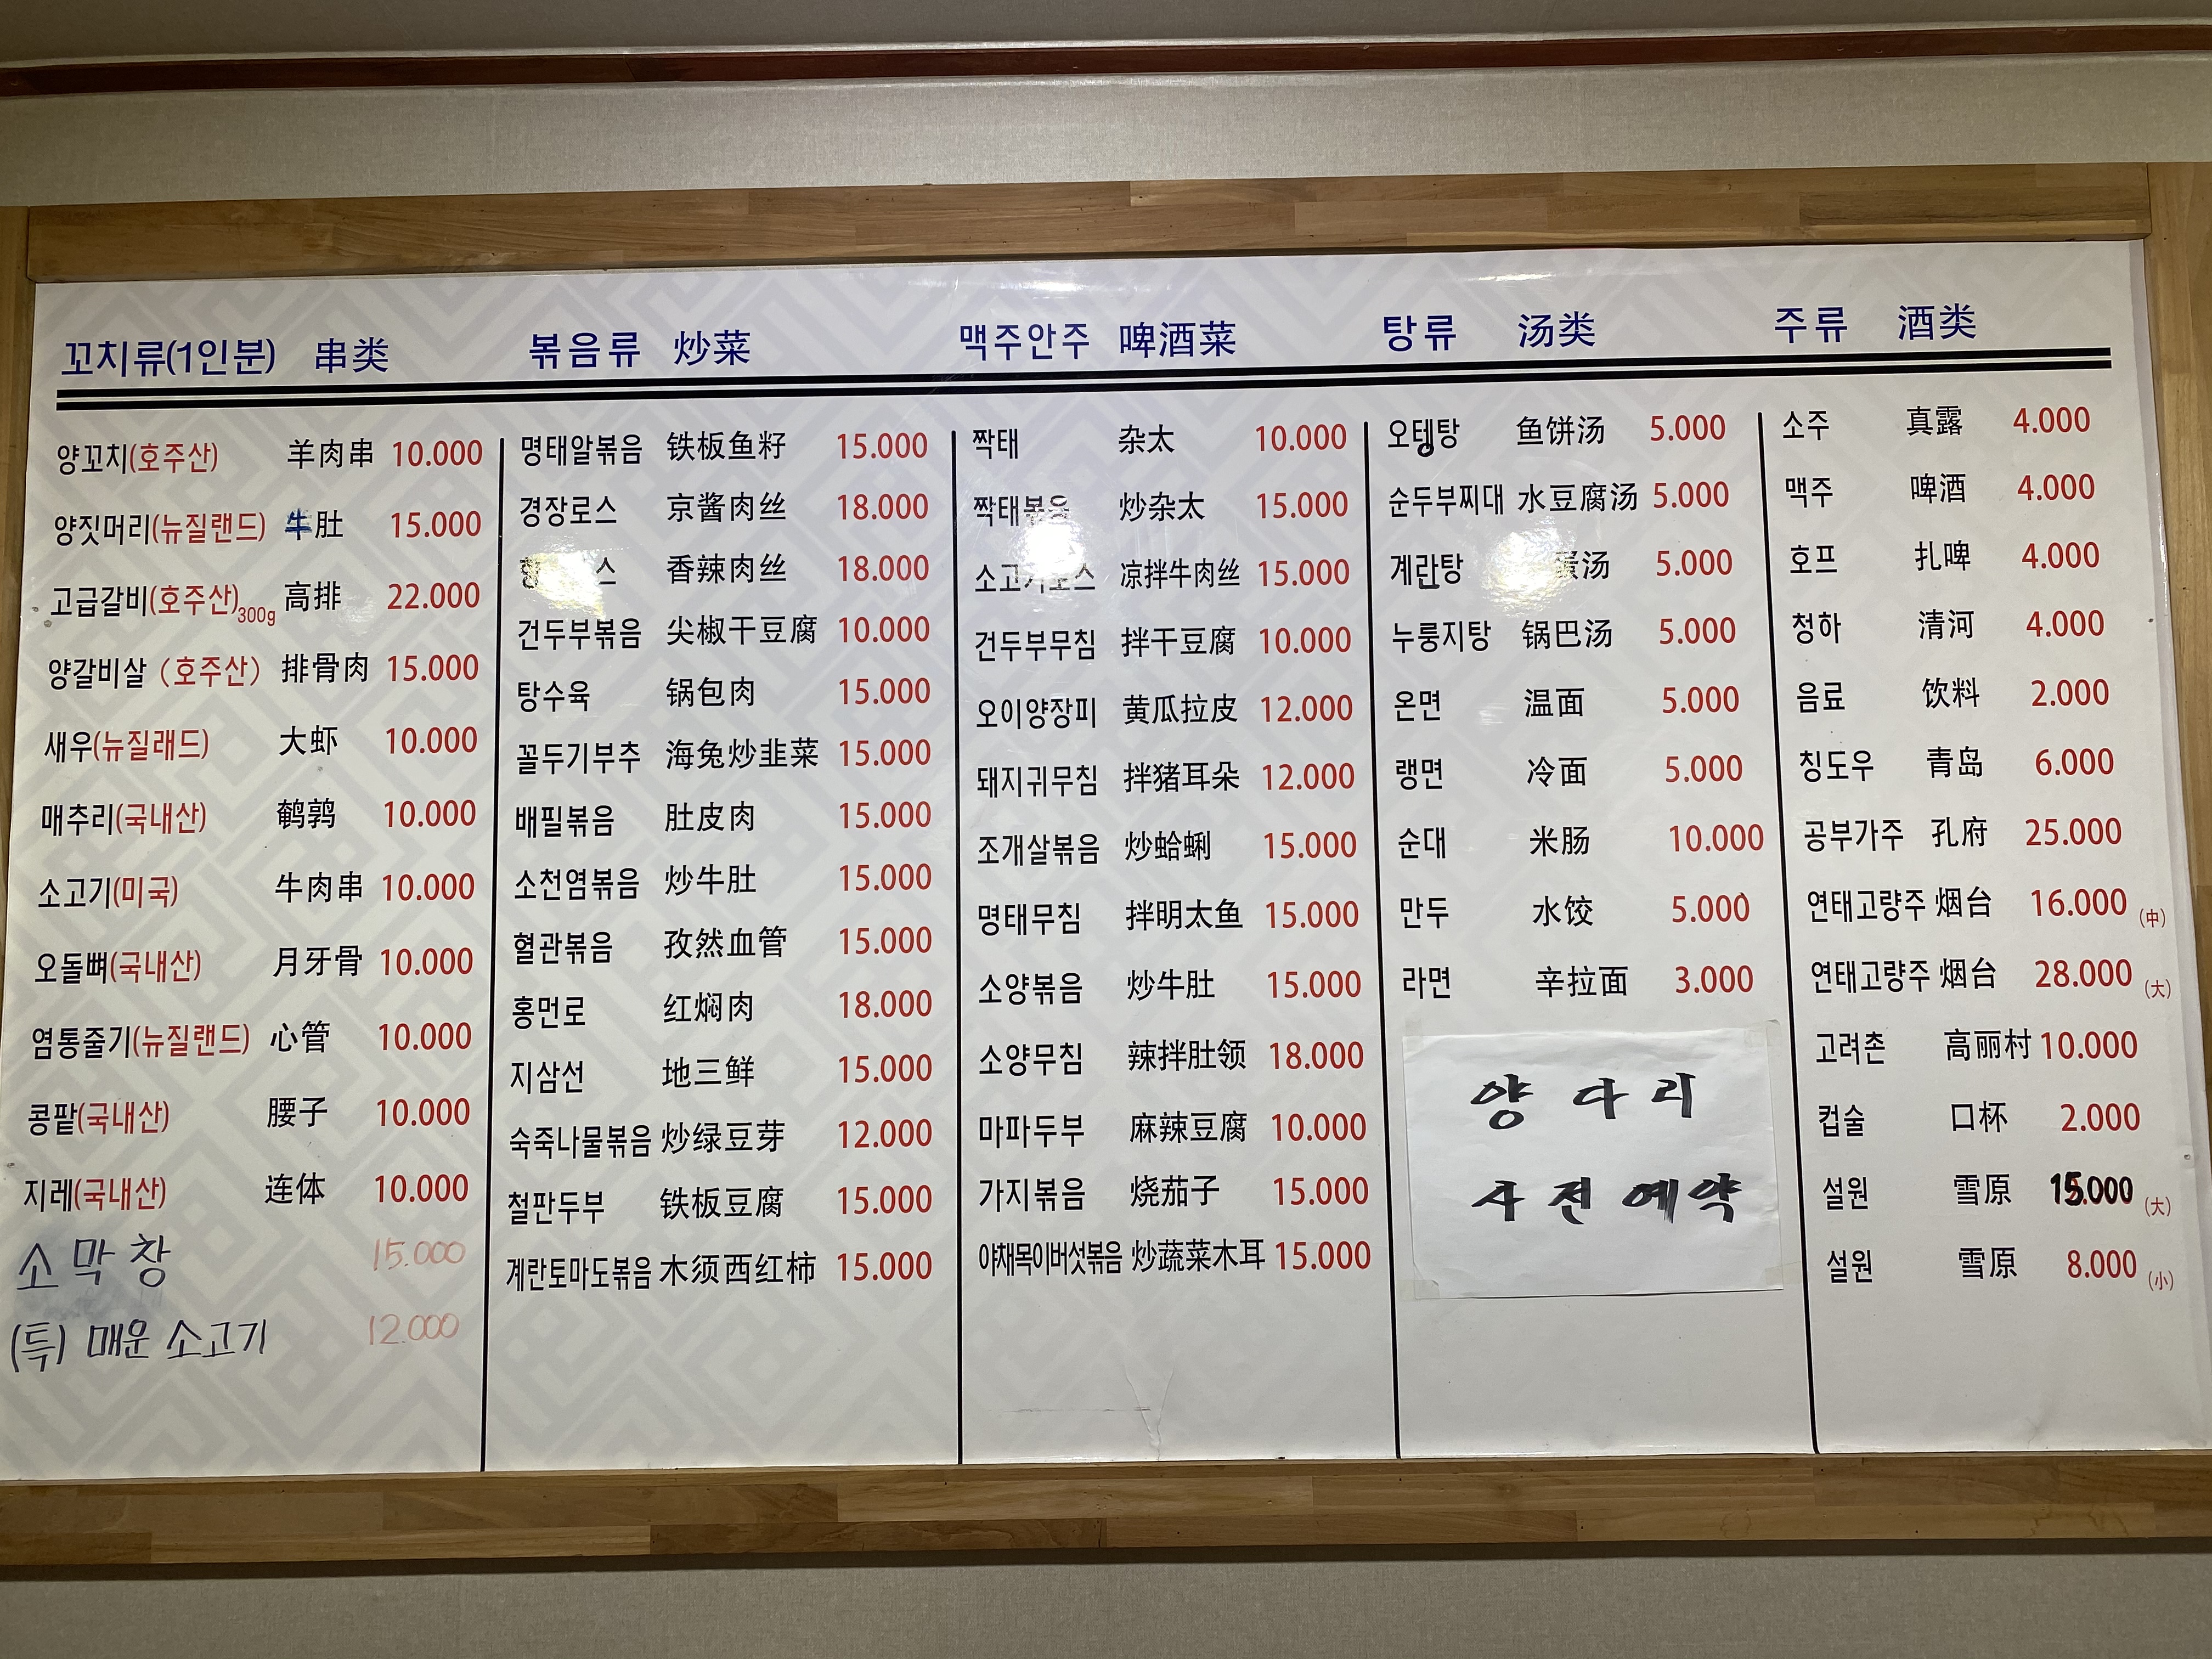 꼬치류(1인분) 串类
양꼬치(호주산) 羊肉串 10.000
양짓머리(뉴질랜드) 牛肚 15.000
고급갈비(호주산)300g 高排 22.000
양갈비살 (호주산) 排骨肉 15.000
새우(뉴질래드) 大虾 10.000
매추리(국내산) 鹌鹑 10.000
소고기(미국) 牛肉串 10.000
오돌뼈(국내산) 月牙骨 10.000
염통줄기(뉴질랜드) 心管 10.000
콩팥(국내산) 腰子 10.000
지레(국내산) 连体 10.000
소막창 15.000
(특) 매운 소고기 12.000
볶음류 炒菜
명태알볶음 铁板鱼籽 15.000
경장로스 京酱肉丝 18.000
스 香辣肉丝 18.000
건두부볶음 尖椒干豆腐 10.000
탕수육 锅包肉 15.000
꼴두기부추 海兔炒韭菜 15.000
배필볶음 肚皮肉 15.000
소천엽볶음 炒牛肚 15.000
혈관볶음 孜然血管 15.000
홍먼로 红焖肉 18.000
지삼선 地三鲜 15.000
숙죽나물볶음 炒绿豆芽 12.000
철판두부 铁板豆腐 15.000
계란토마도볶음 木须西红柿 15.000
맥주안주 啤酒菜
짝태 杂太 10.000
짝태볶음 炒杂太 15.000
소고기로스 凉拌牛肉丝 15.000
건두부무침 拌干豆腐 10.000
오이양장피 黄瓜拉皮 12.000
돼지귀무침 拌猪耳朵 12.000
조개살볶음 炒蛤蜊 15.000
명태무침 拌明太鱼 15.000
소양볶음 炒牛肚 15.000
소양무침 辣拌肚领 18.000
마파두부 麻辣豆腐 10.000
가지볶음 烧茄子 15.000
야채목이버섯볶음 炒蔬菜木耳 15.000
탕류 汤类
오텡탕 鱼饼汤 5.000
순두부찌대 水豆腐汤 5.000
계란탕 蛋汤 5.000
누룽지탕 锅巴汤 5.000
온면 温面 5.000
랭면 冷面 5.000
순대 米肠 10.000
만두 水饺 5.000
라면 辛拉面 3.000
양 다리
사전예약
주류 酒类
소주 真露 4.000
맥주 啤酒 4.000
호프 扎啤 4.000
청하 清河 4.000
음료 饮料 2.000
칭도우 青岛 6.000
공부가주 孔府 25.000
연태고량주 烟台 16.000 (中)
연태고량주 烟台 28.000 (大)
고려촌 高丽村 10.000
컵술 口杯 2.000
설원 雪原 15.000 (大)
설원 雪原 8.000 (小)